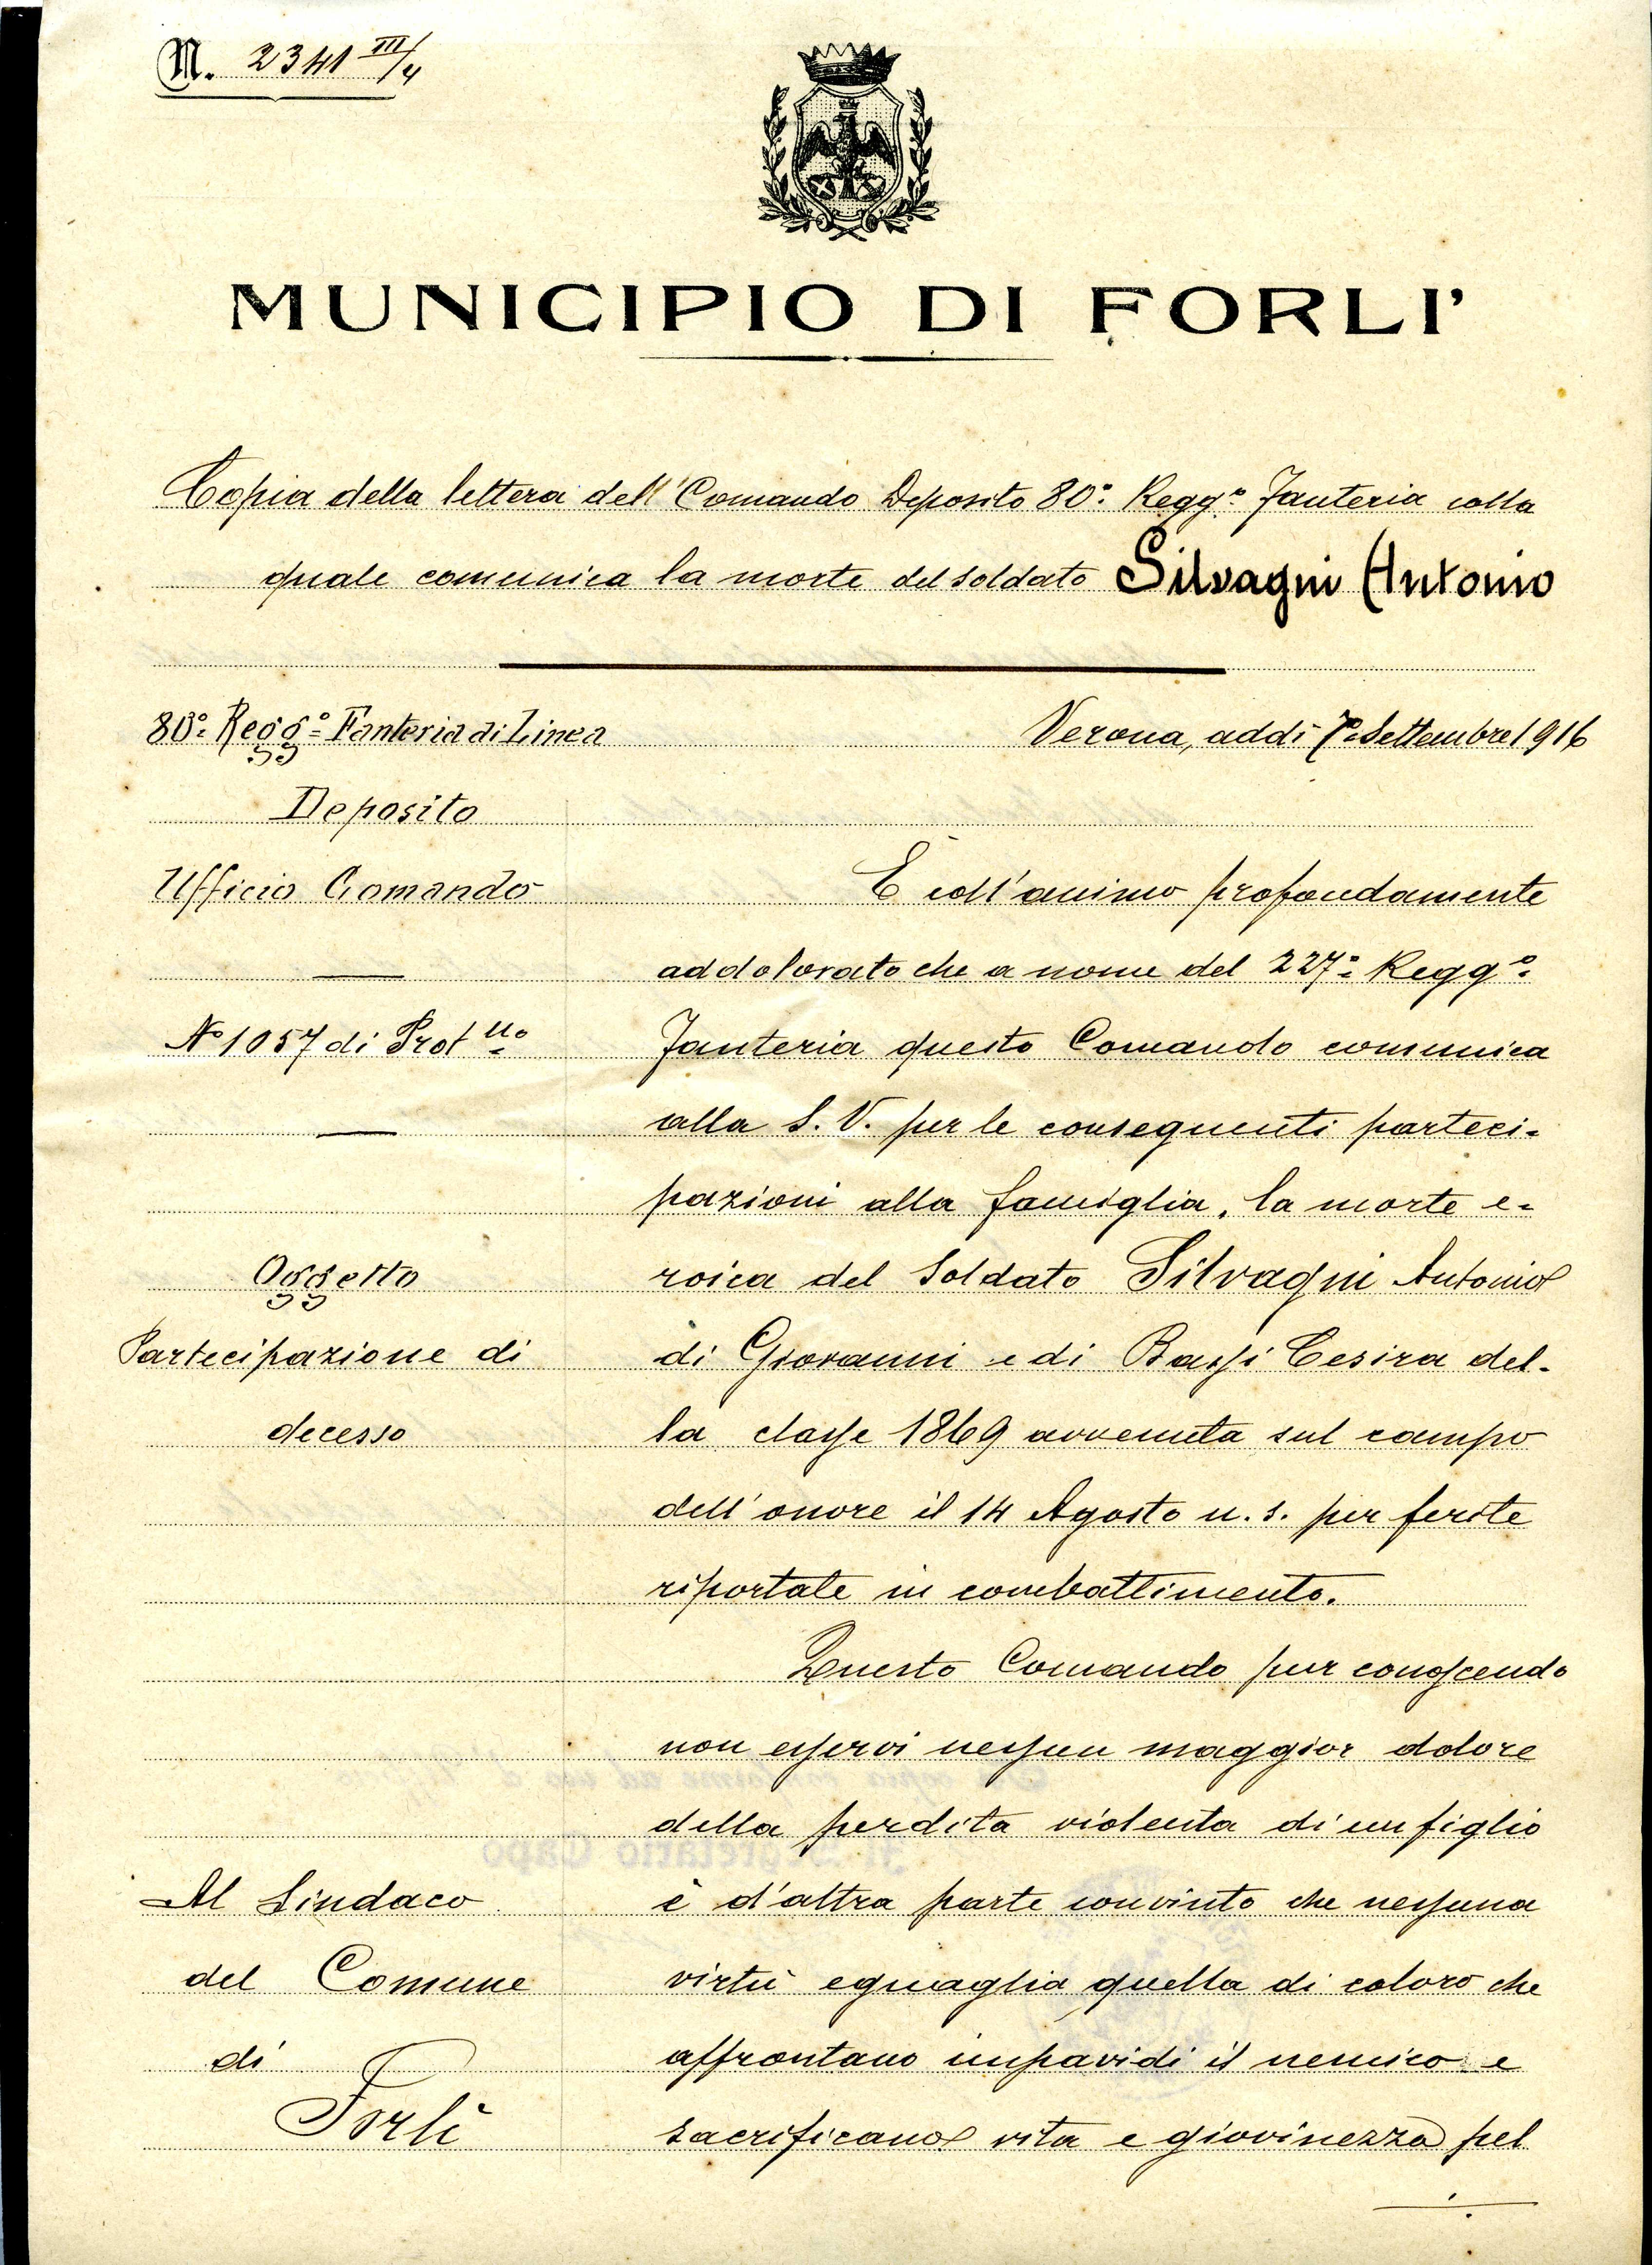 N. 2341 III/4
MUNICIPIO DI FORLI'
Copia della lettera dell'Comando Deposito 80º Reggº Fanteria colla
quale comunica la morte del soldato Silvagni Antonio
80º Reggº Fanteria di Linea
Verona, addì 7º Settembre 1916
Deposito
Ufficio Comando
Nº 1057 di Protllo
Oggetto
Partecipazione di
decesso
Al Sindaco
del Comune
di
Forlì
È coll'animo profondamente
addolorato che a nome del 227º Reggº
Fanteria questo Comando comunica
alla S. V. per le conseguenti parteci-
pazioni alla famiglia, la morte e-
roica del Soldato Silvagni Antonio
di Giovanni e di Bassi Cesira del-
la classe 1869 avvenuta sul campo
dell'onore il 14 Agosto u. s. per ferite
riportate in combattimento.
Questo Comando pur conoscendo
non esservi nessun maggior dolore
della perdita violenta di un figlio
è d'altra parte convinto che nessuna
virtù eguaglia quella di coloro che
affrontano impavidi il nemico e
sacrificano vita e giovinezza pel